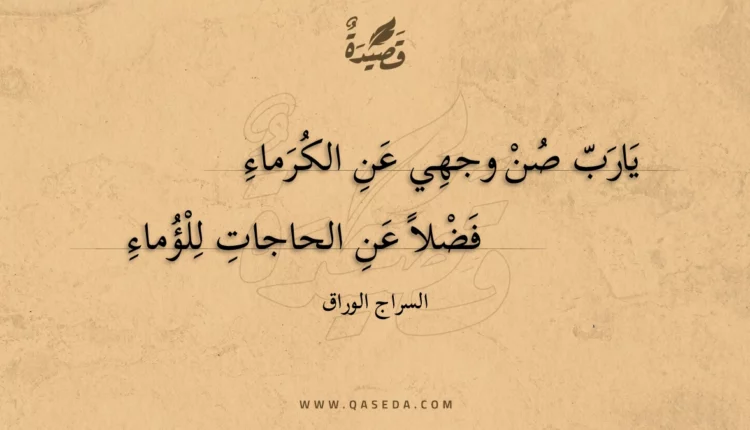 قَصِيدَةٌ
يَارَبّ صُنْ وجهِي عَنِ الكُرَماءِ
فَضْلاً عَنِ الحاجاتِ لِلْؤُماءِ
السراج الوراق
WWW.QASEDA.COM